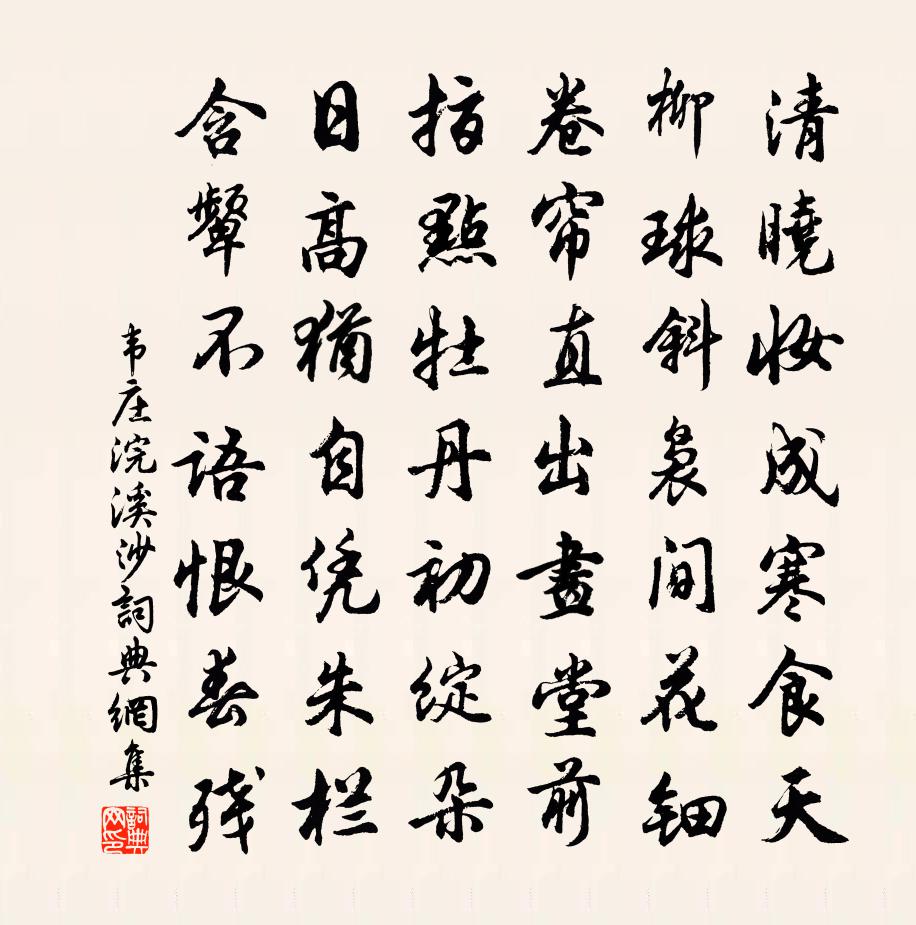 清曉妝成寒食天
柳球斜裊間花鈿
卷帘直出畫堂前
指點牡丹初綻朵
日高猶自凭朱栏
含顰不語恨春残
韦庄浣溪沙詞典網集
詞典网印